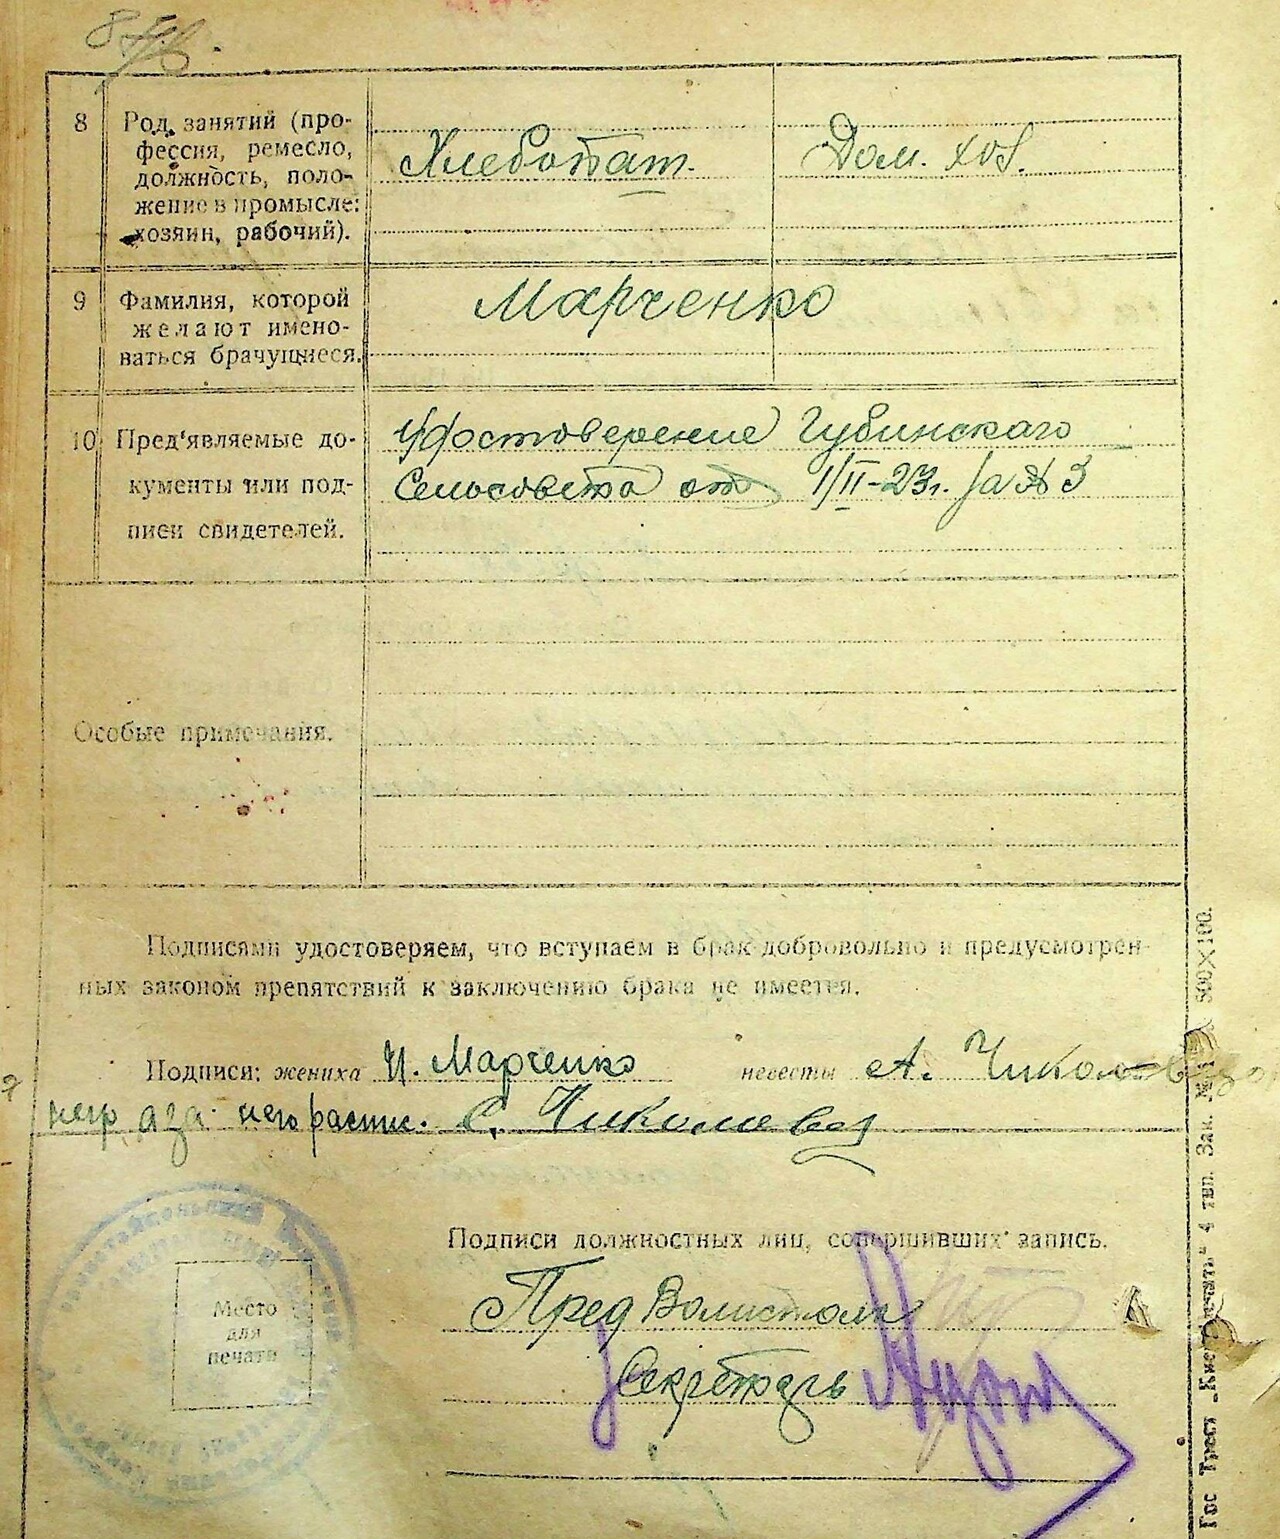 8
Род занятий (про-
фессия, ремесло,
должность, поло-
жение в промысле:
хозяин, рабочий).
Хлебопаш.
Дом. хоз.
9
Фамилия, которой
желают имено-
ваться брачущиеся.
Марченко
10
Пред'являемые до-
кументы или под-
писи свидетелей.
Удостоверение Губинскаго
Сельсовета от 1/II-23г. за № 3
Особые примечания.
Подписями удостоверяем, что вступаем в брак добровольно и предусмотрен-
ных законом препятствий к заключению брака не имеется.
Подписи: жениха И. Марченко невесты А.
негр за неё распис. С.
Подписи должностных лиц, совершивших запись.
Место
для
печати
Пред Волисполк
Секретарь
Гос Трест „Киев-Печать“ 4 тип. Зак. № 500×100.